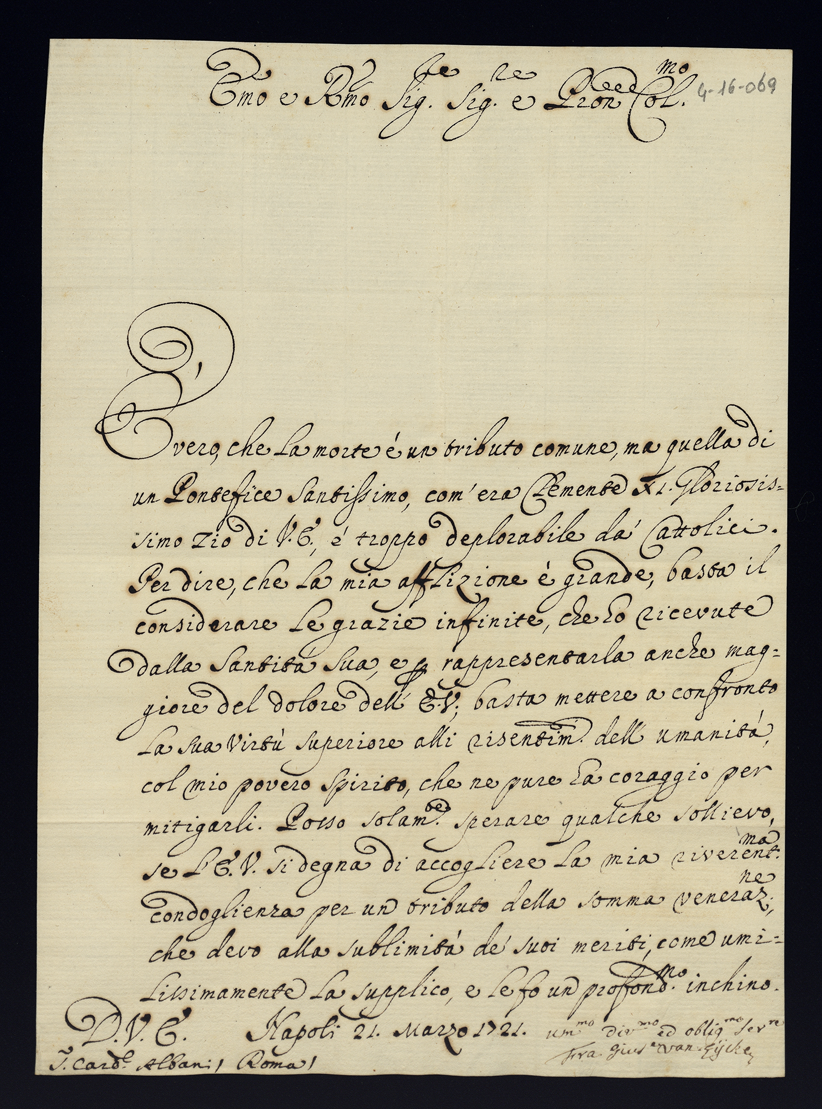 Emo e Rmo Sig.re Sig.re e Pron Col.mo
4-16-069
E vero, che la morte é un tributo comune, ma quella di
un Pontefice Santissimo, com'era Clemente XI. Gloriosis=
simo Zio di V.E., é troppo deplorabile da' Cattolici.
Per dire, che la mia afflizione è grande, basta il
considerare le grazie infinite, che hò ricevute
dalla Santità Sua, e p rappresentarla anche mag=
giore del dolore dell' E.V., basta mettere a confronto
la sua Virtù superiore alli risentim.i dell' umanità,
col mio povero spirito, che ne pure ha coraggio per
mitigarli. Posso solam.te sperare qualche sollievo,
se l'E.V. si degna di accogliere la mia riverent.ma
condoglienza per un tributo della somma veneraz.ne,
che devo alla sublimità de' suoi meriti, come umi=
lissimamente la supplico, e le fo un profond.mo inchino.
D.V.E. Napoli 21. Marzo 1721. um.mo div.mo ed oblig.mo Ser.re
Fra. Gius.e Van-Eycken
S. Card.l Albani Roma